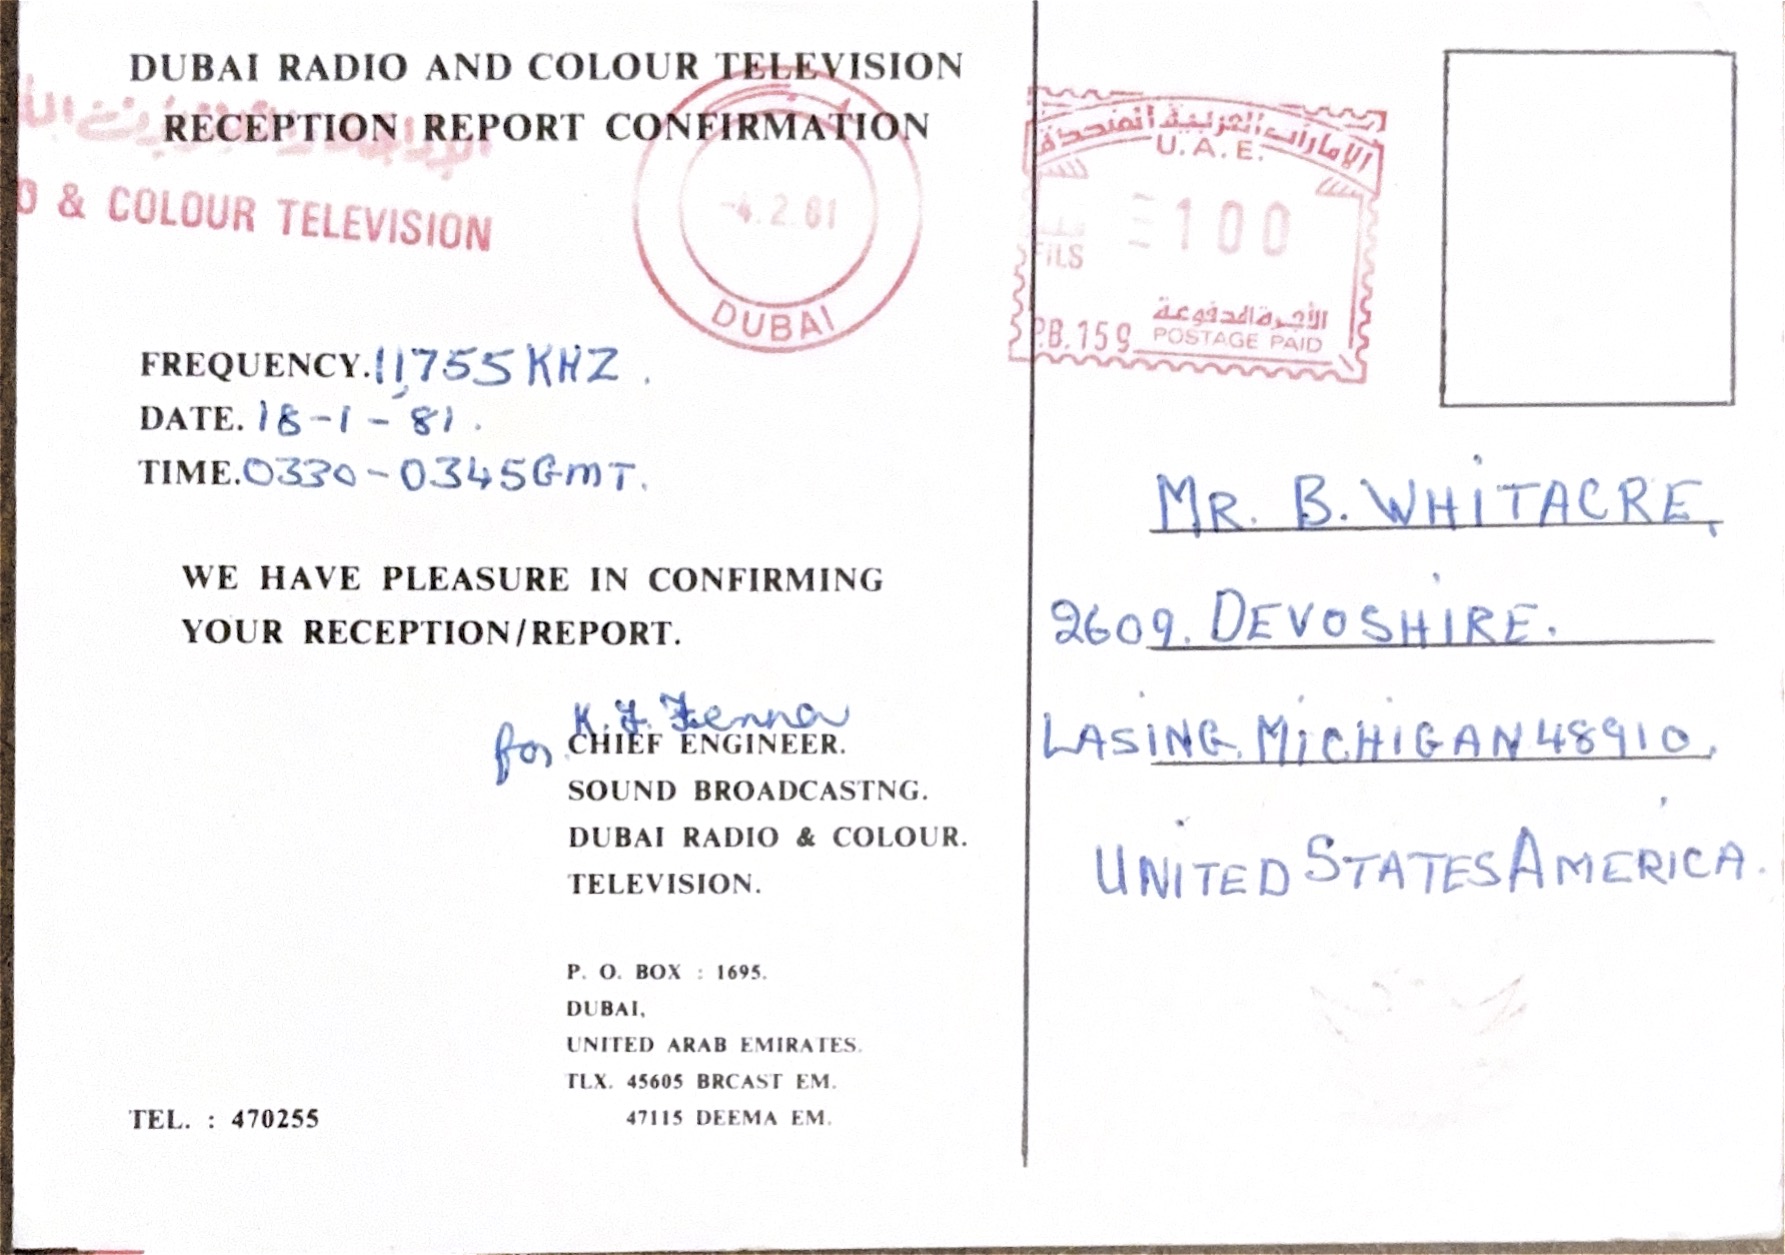 DUBAI RADIO AND COLOUR TELEVISION
RECEPTION REPORT CONFIRMATION
& COLOUR TELEVISION
-4.2.81
DUBAI
الإمارات العربية المتحدة
U.A.E.
100
FILS
P.B.159
الأجرة المدفوعة
POSTAGE PAID
FREQUENCY. 11,755 KHZ.
DATE. 18-1-81.
TIME. 0330-0345 GMT.
WE HAVE PLEASURE IN CONFIRMING
YOUR RECEPTION/REPORT.
K. J. Fenna
for CHIEF ENGINEER.
SOUND BROADCASTNG.
DUBAI RADIO & COLOUR.
TELEVISION.
P. O. BOX : 1695.
DUBAI,
UNITED ARAB EMIRATES.
TLX. 45605 BRCAST EM.
47115 DEEMA EM.
TEL. : 470255
MR. B. WHITACRE,
2609. DEVOSHIRE.
LASING, MICHIGAN 48910,
UNITED STATES AMERICA.